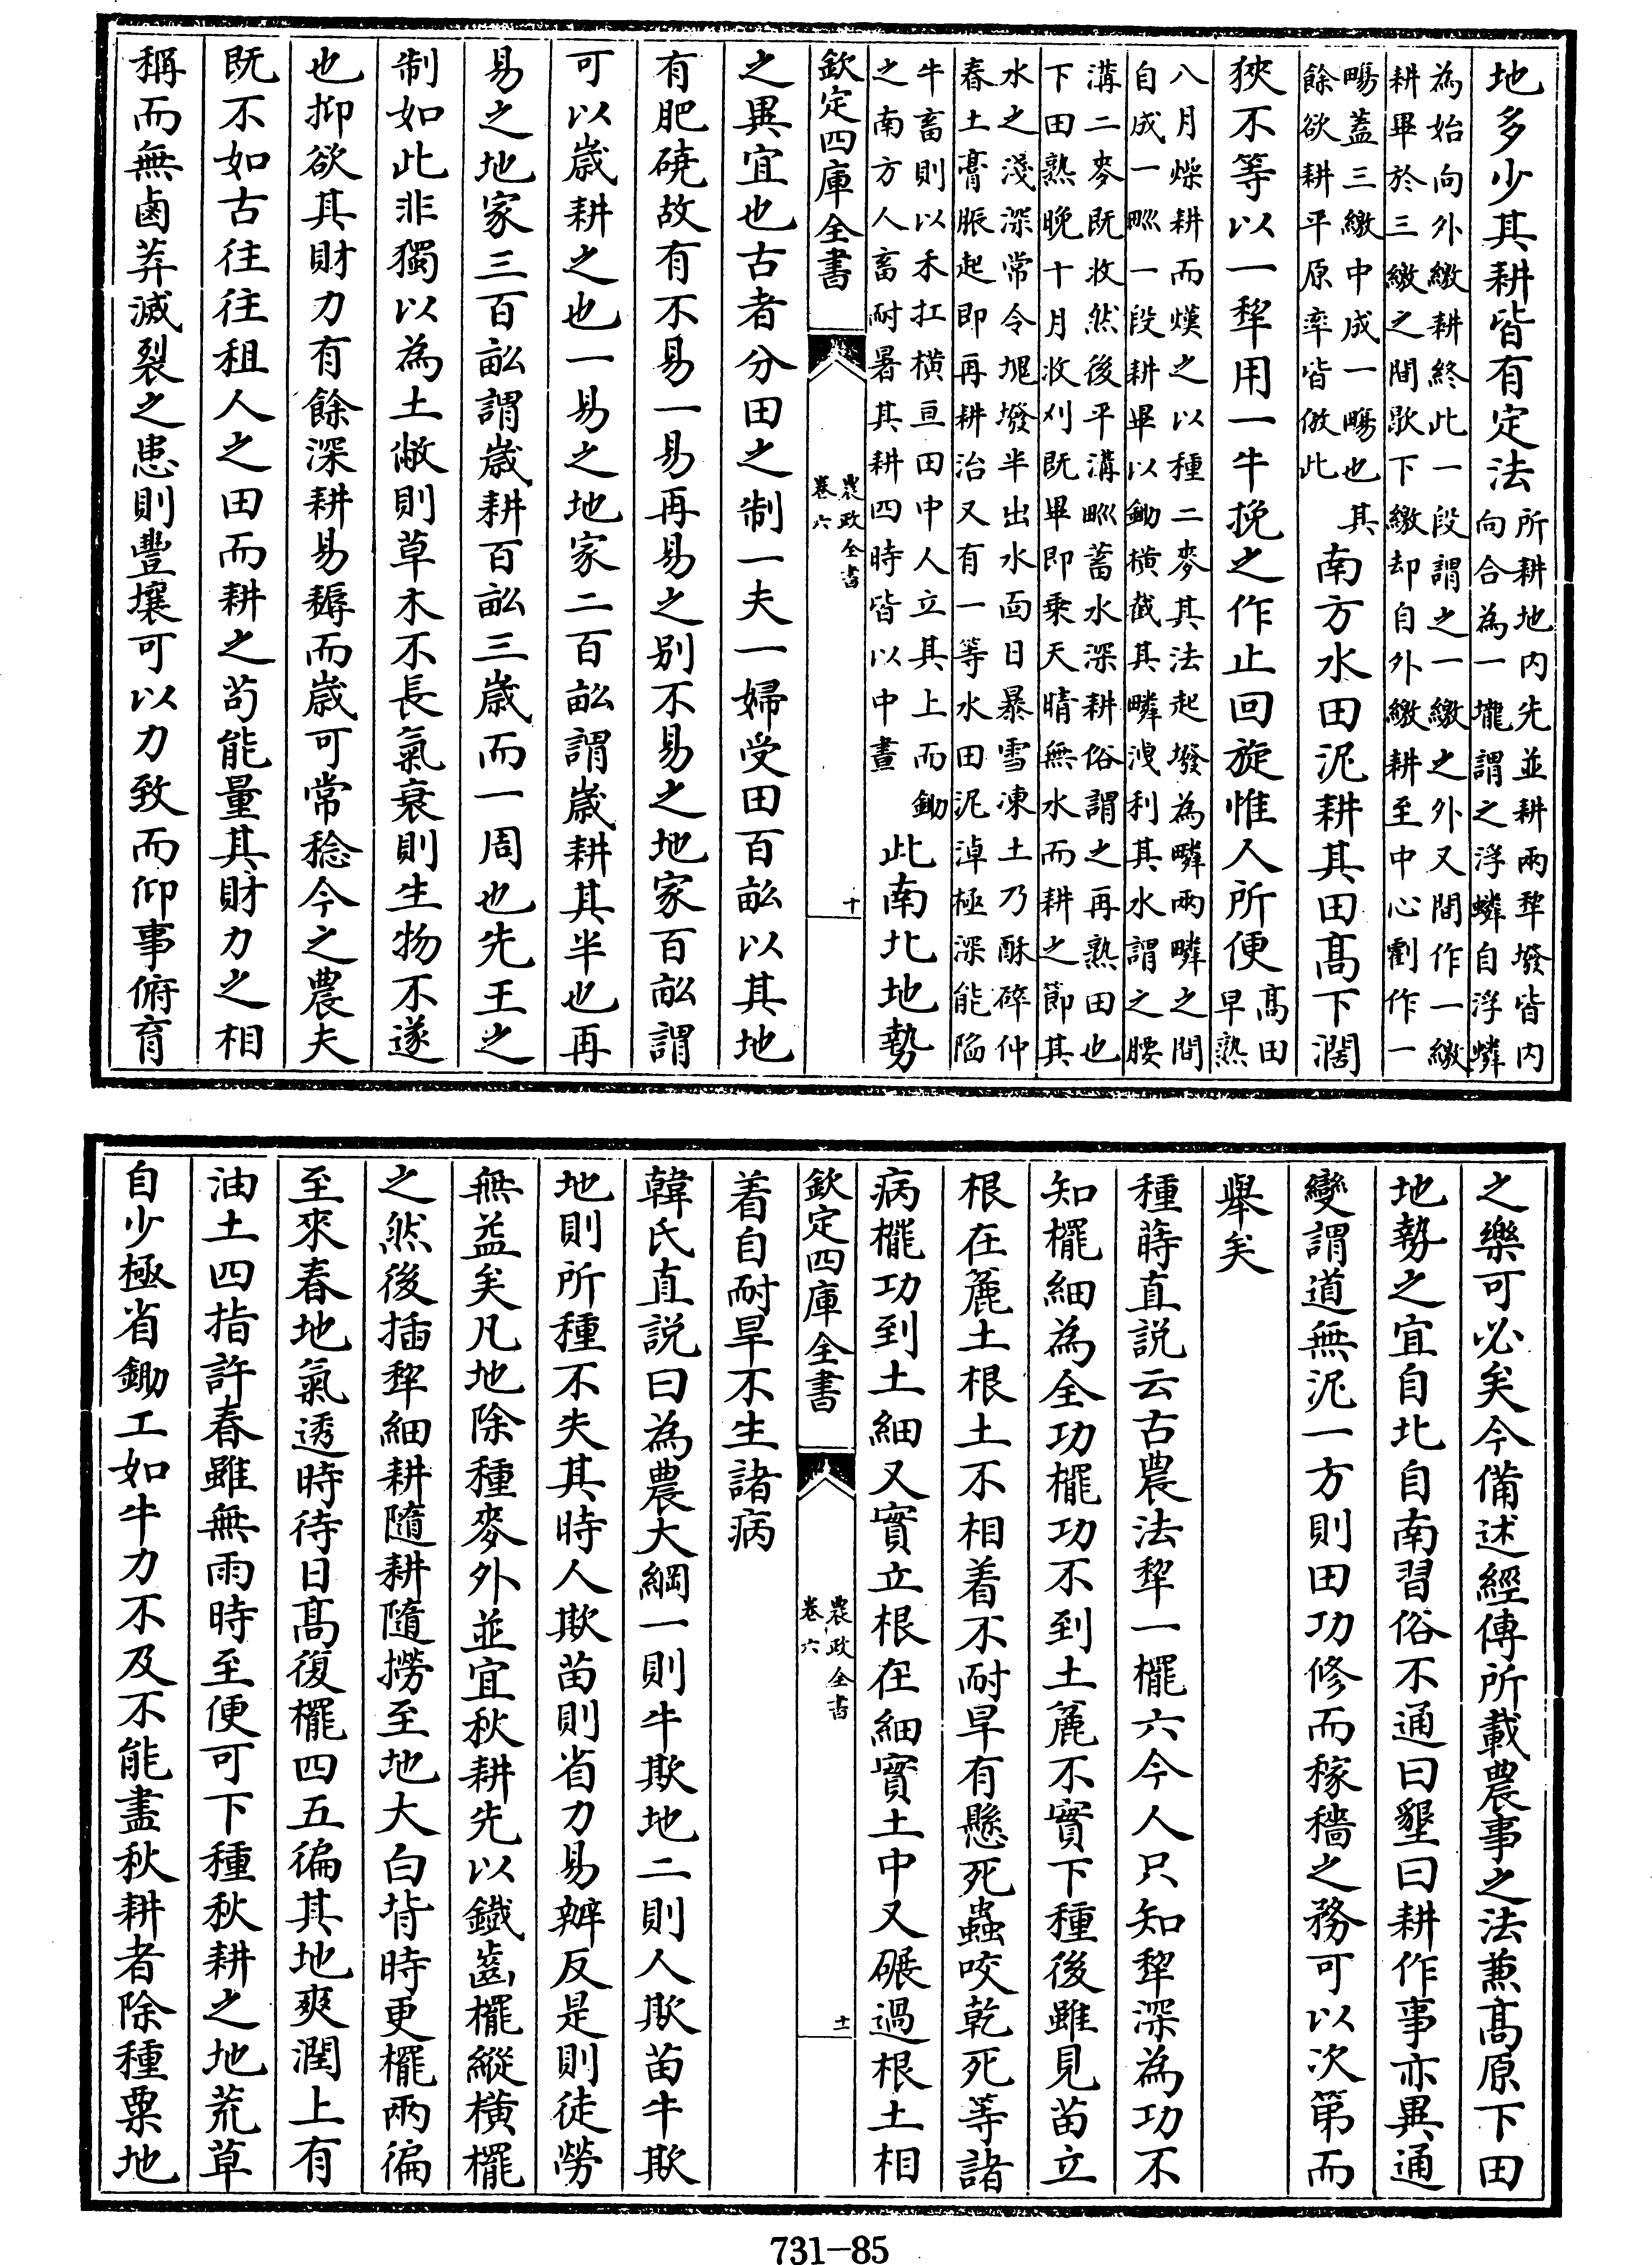 地多少其耕皆有定法
所耕地内先並耕兩犂墢皆内
向合為一壠謂之浮疄自浮疄
為始向外繳耕終此一段謂之一繳之外又間作一繳
耕畢於三繳之間歇下繳却自外繳耕至中心劐作一
畼蓋三繳中成一畼也其
餘欲耕平原率皆倣此
南方水田泥耕其田髙下濶
狹不等以一犂用一牛挽之作止回旋惟人所便
髙田
早熟
八月燥耕而熯之以種二麥其法起墢為疄兩疄之間
自成一㽟一段耕畢以鋤横截其疄洩利其水謂之腰
溝二麥既收然後平溝㽟蓄水深耕俗謂之再熟田也
下田熟晚十月收刈既畢即乘天晴無水而耕之節其
水之淺深常令塊墢半出水面日暴雪凍土乃酥碎仲
春土膏脈起即再耕治又有一等水田泥淖極深能陷
牛畜則以禾扛横亘田中人立其上而鋤
之南方人畜耐暑其耕四時皆以中晝
此南北地勢
欽定四庫全書
農政全書
卷六
十
之異宜也古者分田之制一夫一婦受田百畝以其地
有肥磽故有不易一易再易之别不易之地家百畝謂
可以歲耕之也一易之地家二百畝謂歲耕其半也再
易之地家三百畝謂歲耕百畝三歲而一周也先王之
制如此非獨以為土敝則草木不長氣衰則生物不遂
也抑欲其財力有餘深耕易耨而歲可常稔今之農夫
既不如古往往租人之田而耕之苟能量其財力之相
稱而無鹵莽滅裂之患則豐壤可以力致而仰事俯育
之樂可必矣今備述經傳所載農事之法兼髙原下田
地勢之宜自北自南習俗不通曰墾曰耕作事亦異通
變謂道無泥一方則田功修而稼穡之務可以次第而
舉矣
種蒔直説云古農法犂一擺六今人只知犂深為功不
知擺細為全功擺功不到土麄不實下種後雖見苗立
根在麄土根土不相着不耐旱有懸死蟲咬乾死等諸
病擺功到土細又實立根在細實土中又碾過根土相
欽定四庫全書
農政全書
卷六
十一
着自耐旱不生諸病
韓氏直説曰為農大綱一則牛欺地二則人欺苗牛欺
地則所種不失其時人欺苗則省力易辦反是則徒勞
無益矣凡地除種麥外並宜秋耕先以鐵齒擺縱横擺
之然後插犂細耕隨耕隨撈至地大白背時更擺兩徧
至來春地氣透時待日髙復擺四五徧其地爽潤上有
油土四指許春雖無雨時至便可下種秋耕之地荒草
自少極省鋤工如牛力不及不能盡秋耕者除種粟地
731-85